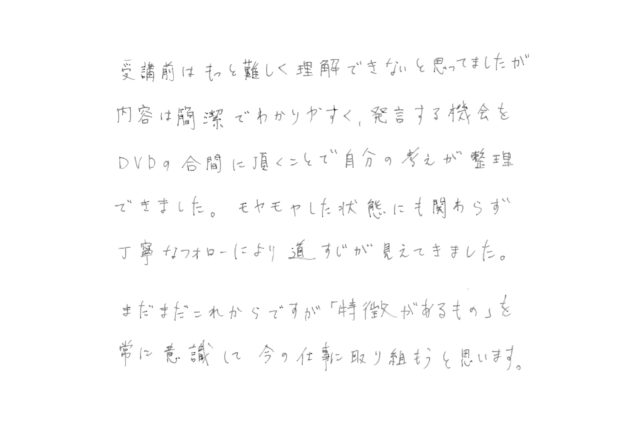 受講前はもっと難しく理解できないと思ってましたが
内容は簡潔でわかりやすく、発言する機会を
DVDの合間に頂くことで自分の考えが整理
できました。モヤモヤした状態にも関わらず
丁寧なフォローにより道すじが見えてきました。
まだまだこれからですが「特徴があるもの」を
常に意識して今の仕事に取り組もうと思います。